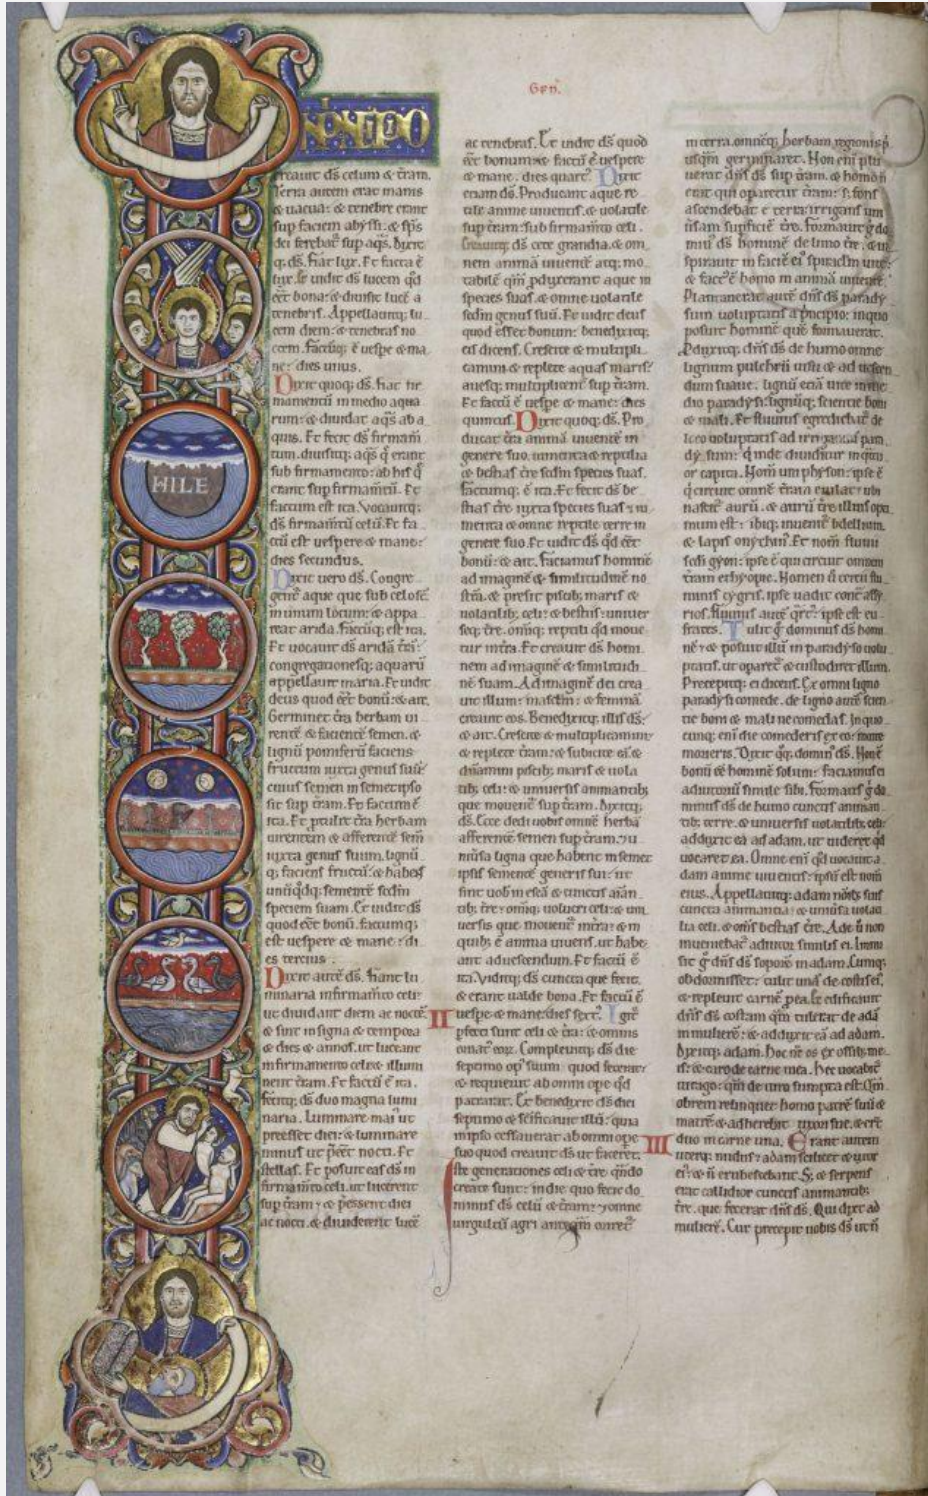 Geñ.
IN PRINCIPIO
HILE
creauit dš celum & t̄ram.
Terra autem erat inanis
& uacua: & tenebre erant
sup faciem abyssi: & sp̄s
dei ferebat᷑ sup aq̄s. Dixit
q; dš. Fiat lux. Et facta ē
lux. Et uidit dš lucem qd̄
eēt bona: & diuisit lucē a
tenebris. Appellauitq; lu
cem diem: & tenebras no
ctem. Factūq; ē uespe & ma
ne: dies unus.
Dixit quoq; dš. Fiat fir
mamentū in medio aqua
rum: & diuidat aq̄s ab a
quis. Et fecit dš firmam̄
tum. diuisitq; aq̄s q̄ erant
sub firmamento: ab his q̄
erant sup firmam̄tū. Et
factum est ita. Vocauitq;
dš firmam̄tū celū. Et fa
ctū est uespere & mane:
dies secundus.
Dixit uero dš. Congre
gent᷑ aque que sub celo sē
in unum locum: & appa
reat arida. Factūq; est ita.
Et uocauit dš aridā t̄rā:
congregationesq; aquarū
appellauit maria. Et uidit
deus quod eēt bonū: & ait.
Germinet t̄ra herbam ui
rentē & facientē semen. &
lignū pomiferū faciens
fructum iuxta genus suū:
cuius semen in semetipso
sit sup t̄ram. Et factum ē
ita. Et ptulit t̄ra herbam
uirentem & afferentē sem̄
iuxta genus suum. lignū
q; faciens fructū: & habēs
unūqdq; sementē sedm̄
speciem suam. Et uidit dš
quod eēt bonū. factumq;
est uespere & mane: di
es tercius.
Dixit autē dš. Fiant lu
minaria in firmam̄to celi:
ut diuidant diem ac noctē.
& sint in signa & tempora
& dies & annos. ut luceant
in firmamento celi: & illum
inent t̄ram. Et factū ē ita.
fecitq; dš duo magna lumi
naria. Luminare mai᷑ ut
preesset diei: & luminare
minus ut p̄eēt nocti. Et
stellas. Et posuit eas dš in
firmam̄to celi. ut lucerent
sup t̄ram: & p̄essent diei
ac nocti. & diuiderent lucē
ac tenebras. Et uidit dš quod
eēt bonum: & factū ē uespere
& mane. dies quart᷑. Dixit
etiam dš. Producant aque re
tile anime uiuentis. & uolatile
sup t̄ram: sub firmam̄to celi.
Creauitq; dš cete grandia. & om
nem animā uiuentē atq; mo
tabilē qm̄ pduxerant aque in
species suas. & omne uolatile
sedm̄ genus suū. Et uidit deus
quod esset bonum: benedixitq;
eis dicens. Crescite & multipli
camini & replete aquas maris:
auesq; multiplicent᷑ sup t̄ram.
Et factū ē uespe & mane: dies
quintus. Dixit quoq; dš. Pro
ducat t̄ra animā uiuentē in
genere suo. iumenta & reptilia
& bestias t̄re sedm̄ species suas.
factumq; ē ita. Et fecit dš be
stias t̄re iuxta species suas: iu
menta & omne reptile terre in
genere suo. Et uidit dš qd̄ eēt
bonū: & ait. Faciamus hominē
ad imaginē & similitudinē no
strā. & presit piscib; maris &
uolatilib; celi: & bestiis: uniuer
seq; t̄re. omniq; reptili qd̄ moue
tur in t̄ra. Et creauit dš homi
nem ad imaginē & similitudi
nē suam. Ad imaginē dei crea
uit illum: masclm̄: & feminā
creauit eos. Benedixitq; illis dš:
& ait. Crescite & multiplicamini
& replete t̄ram: & subicite eā. &
dn̄amini piscib; maris & uola
tib; celi: & uniuersis animantib;
que mouent᷑ sup t̄ram. Dixitq;
dš. Ecce dedi uobis omnē herbā
afferentē semen sup t̄ram. & u
niūsa ligna que habent in semet
ipsis sementē generis sui: ut
sint uob̄ in escā & cunctis aīan
tib; t̄re: omiq; uolucri celi: & uni
uersis que mouent᷑ in t̄ra: & in
quib; ē anima uiuens. ut habe
ant ad uescendum. Et factū ē
ita. Viditq; dš cuncta que fecit.
& erant ualde bona. Et factū ē
II uespe & mane: dies sext᷑. Igit᷑
pfecti sunt celi & t̄ra: & omnis
ornat᷑ eoꝝ. Compleuitq; dš die
septimo op᷑ suum quod fecerat:
& requieuit ab omni ope qd̄
patrarat. Et benedixit dš diei
septimo & sc̄ificauit illū: quia
in ipso cessauerat ab omni ope
suo quod creauit dš ut faceret.
Iste generationes celi & t̄re qn̄do
create sunt: in die quo fecit do
minus dš celū & t̄ram: & omne
uirgultū agri antequā oriret᷑
in terra. omnēq; herbam regionis p̄
usqm̄ germinaret. Non enī plu
uerat dn̄s dš sup t̄ram. & homo n̄
erat qui operaret᷑ t̄ram: s; fons
ascendebat e terra: irrigans uni
uīsam supficiē t̄re. Formauit g̊ do
min᷑ dš hominē de limo t̄re. & in
spirauit in faciē ei᷑ spiraclm̄ uite:
& fact᷑ ē homo in animā uiuentē.
Plantauerat autē dn̄s dš parady
sum uoluptatis a p̄ncipio: in quo
posuit hominē quē formauerat.
Pduxitq; dn̄s dš de humo omne
lignum pulchrū uisu & ad uescen
dum suaue. lignū etiā uite in me
dio paradysi: lignūq; scientie boni
& mali. Et fluuius egrediebat᷑ de
loco uoluptatis ad irrigandū para
dysum: q̄ inde diuidit᷑ in q̄tu
or capita. Nom̄ uni physon: ipse ē
q̄ circuit omnē t̄ram euilat: ubi
nascit᷑ aurū. & aurū t̄re illius opti
mum est: ibiq; inuenit᷑ bdellium.
& lapis onychin᷑. Et nom̄ fluuii
sedi gyon: ipse ē qui circuit omnem
t̄ram ethyopie. Nomen ū tertii flu
minis tygris. ipse uadit cont̄ assy
rios. fluuius autē q̄rt᷑: ipse est eu
frates. Tulit g̊ dominus dš homi
nē: & posuit illū in paradyso uolu
ptatis. ut oparet᷑ & custodiret illum.
Precepitq; ei dicens. Ex omni ligno
paradysi comede. de ligno autē scien
tie boni & mali ne comedas. In quo
cunq; enī die comederis ex eo: morte
morieris. Dixit q̊q; domin᷑ dš. Non ē
bonū eē hominē solum: faciamus ei
adiutoriū simile sibi. Formatis g̊ do
minus dš de humo cunctis animan
tib; terre. & uniuersis uolatilib; celi:
adduxit ea ad adam. ut uideret qd̄
uocaret ea. Omne enī qd̄ uocauit a
dam anime uiuentis: ipsū est nom̄
eius. Appellauitq; adam noīb; suis
cuncta animantia: & uniūsa uolati
lia celi. & om̄s bestias t̄re. Ade ū non
inueniebat᷑ adiutor similis ei. Inmi
sit g̊ dn̄s dš soporē in adam. Cumq;
obdormisset: tulit unā de costis ei᷑.
& repleuit carnē p ea. Et edificauit
dn̄s dš costam qm̄ tulerat de adā
in mulierē: & adduxit eā ad adam.
Dixitq; adam. Hoc nc̄ os ex ossib; me
is: & caro de carne mea. Hec uocabit᷑
uirago: qm̄ de uiro sumpta est. Qm̄
obrem relinquet homo patrē suū &
matrē & adherebit uxori sue. & erūt
III duo in carne una. Erant autem
uterq; nudus: adam scilicet & uxor
ei᷑: & ñ erubescebant. S; & serpens
erat callidior cunctis animantib;
t̄re. que fecerat dn̄s dš. Qui dixit ad
mulierē. Cur precepit uobis dš ut ñ